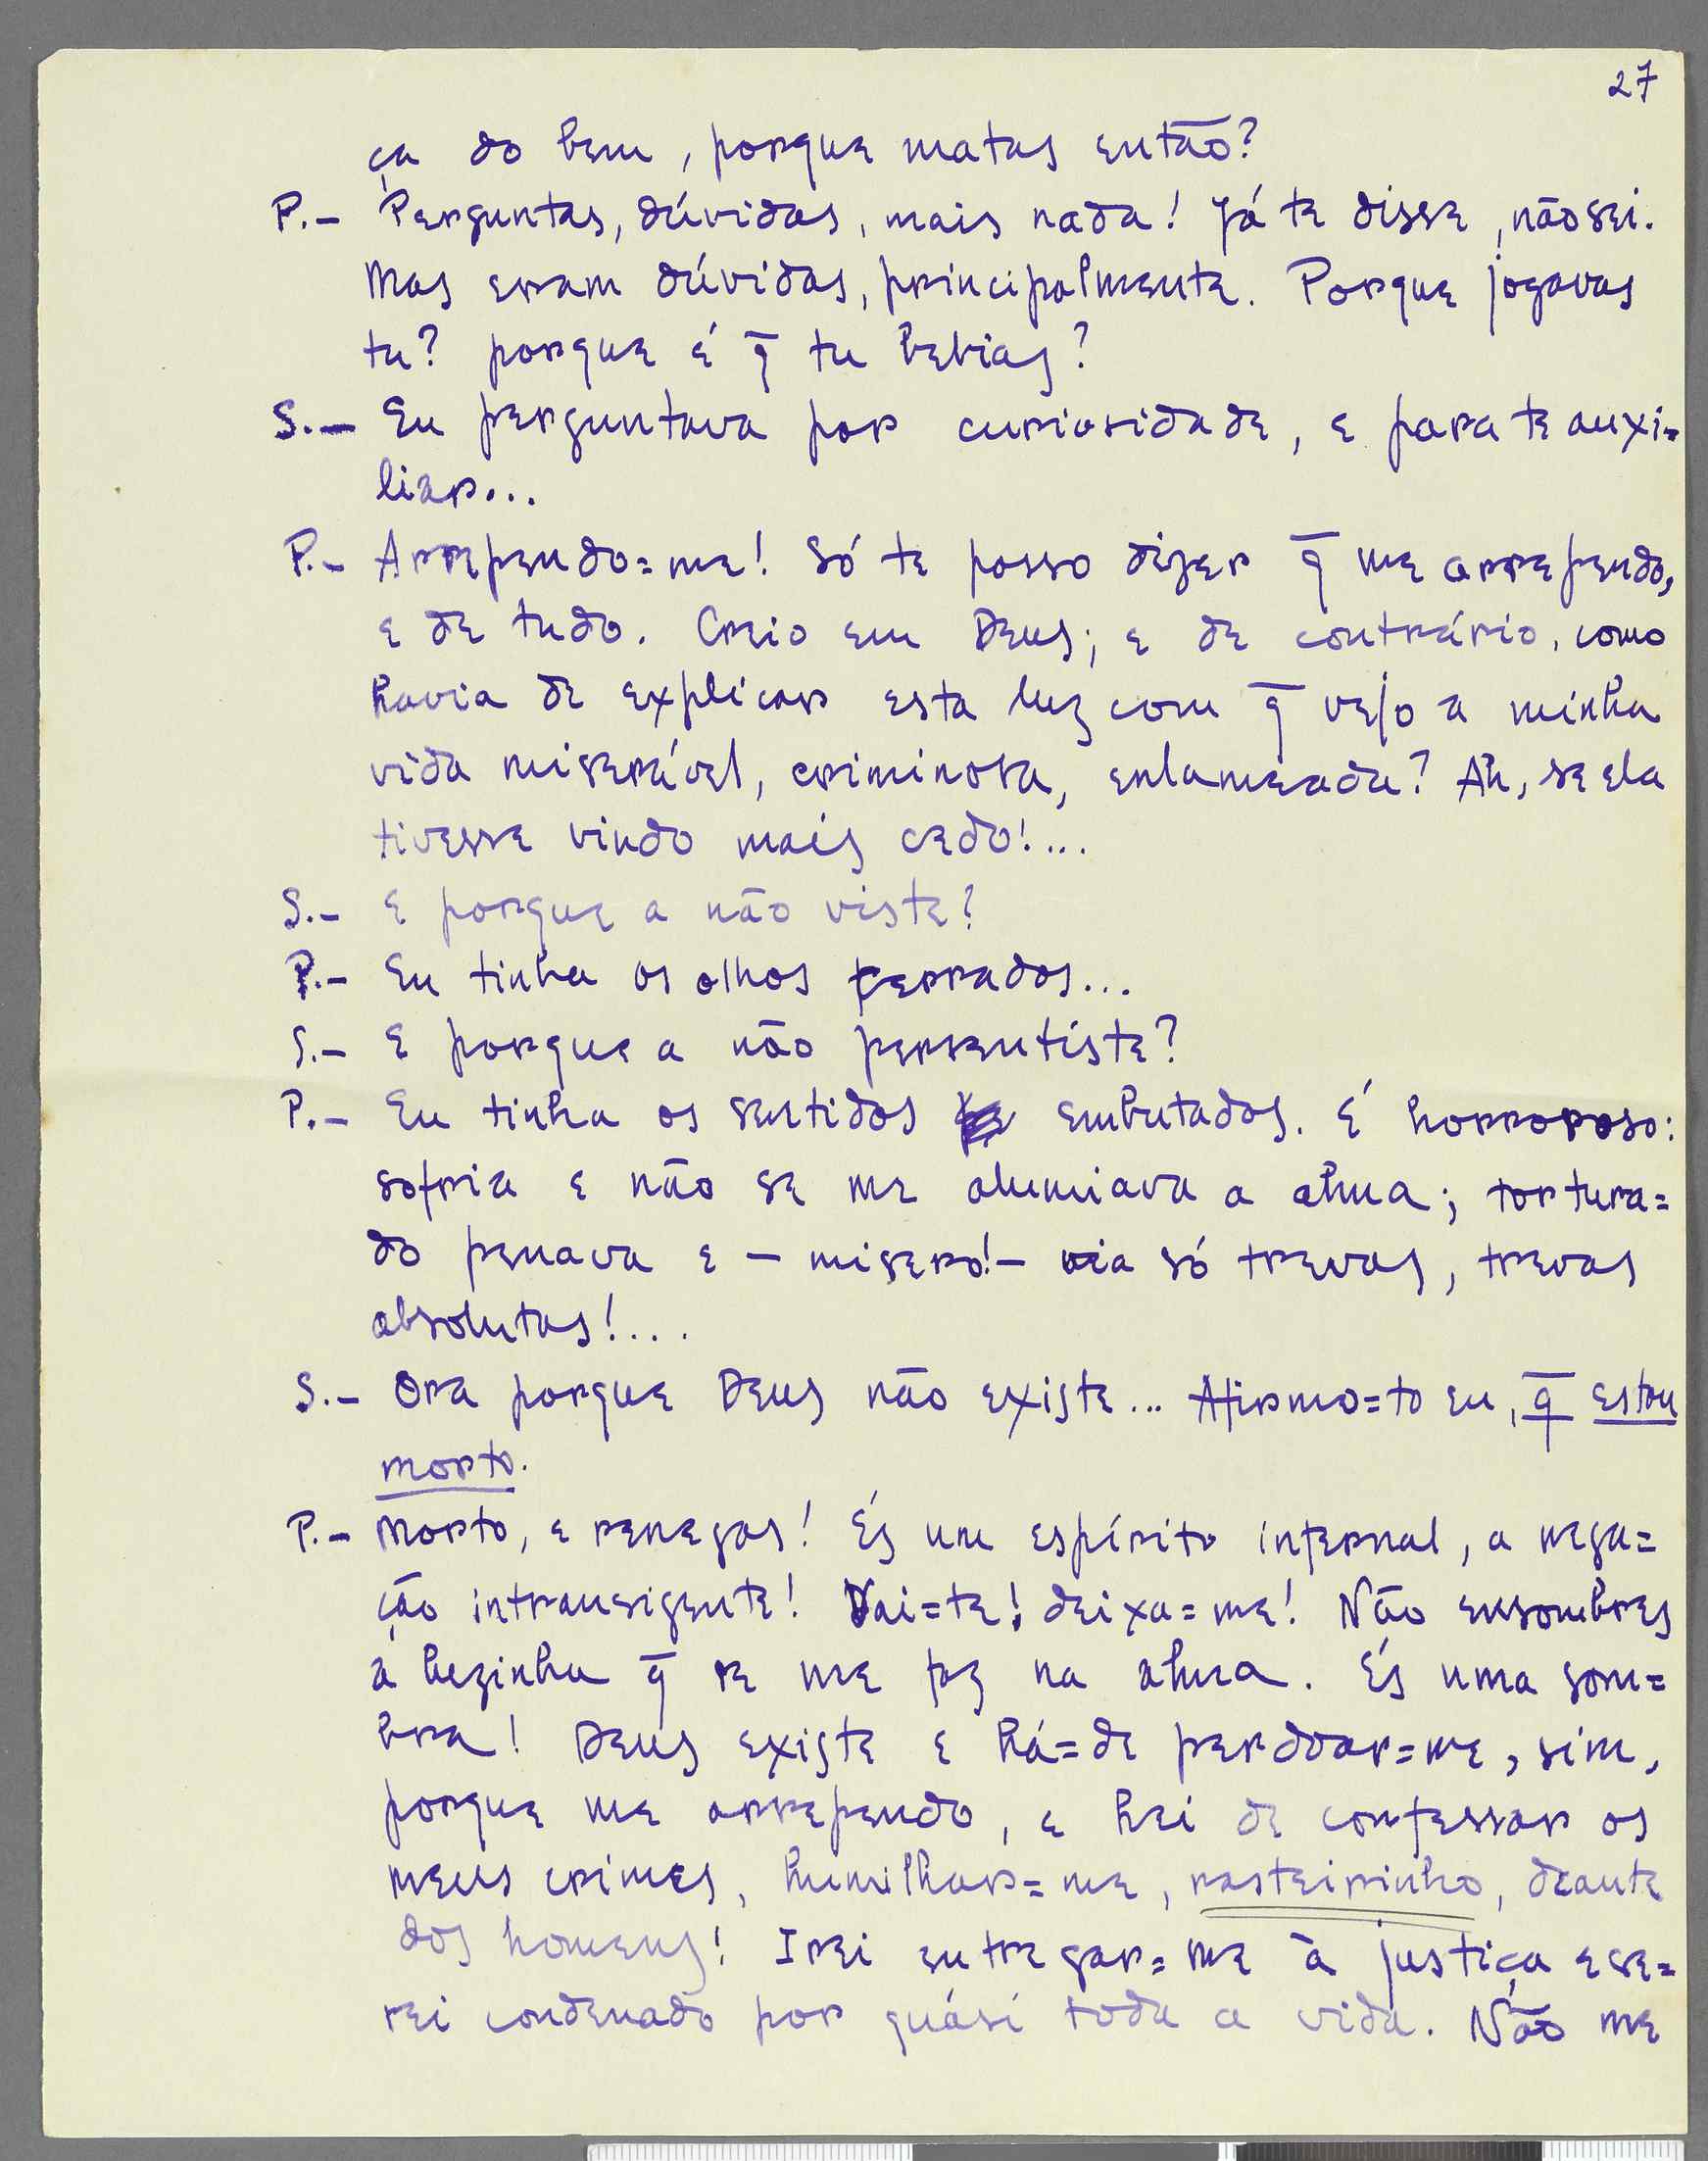 27
ça do bem, porque matas então?
P.- Perguntas, dúvidas, mais nada! Já te disse, não sei.
Mas eram dúvidas, principalmente. Porque jogavas
tu? porque é q̄ tu bebias?
S.- Eu perguntava por curiosidade, e para te auxi=
liar...
P.- Arrependo=me! Só te posso dizer q̄ me arrependo,
e de tudo. Creio em Deus; e de contrário, como
havia de explicar esta luz com q̄ vejo a minha
vida miserável, criminosa, enlameada? Ah, se ela
tivesse vindo mais cedo!...
S.- E porque a não viste?
P.- Eu tinha os olhos cerrados...
S.- E porque a não persentiste?
P.- Eu tinha os sentidos embutados. É horroroso:
sofria e não se me alumiava a alma; tortura=
do penava e - misero!- via só trevas, trevas
absolutas!...
S.- Ora porque Deus não existe... Afirmo=to eu, q̄ estou
morto.
P.- Morto, e renegas! És um espírito infernal, a nega=
ção intransigente! Vai=te! deixa=me! Não ensombres
a luzinha q̄ se me fez na alma. És uma som=
bra! Deus existe e há=de perdoar=me, sim,
porque me arrependo, e hei de confessar os
meus crimes, humilhar=me, rasteirinho, deante
dos homens! Irei entregar=me à justiça e se=
rei condenado por quási toda a vida. Não me